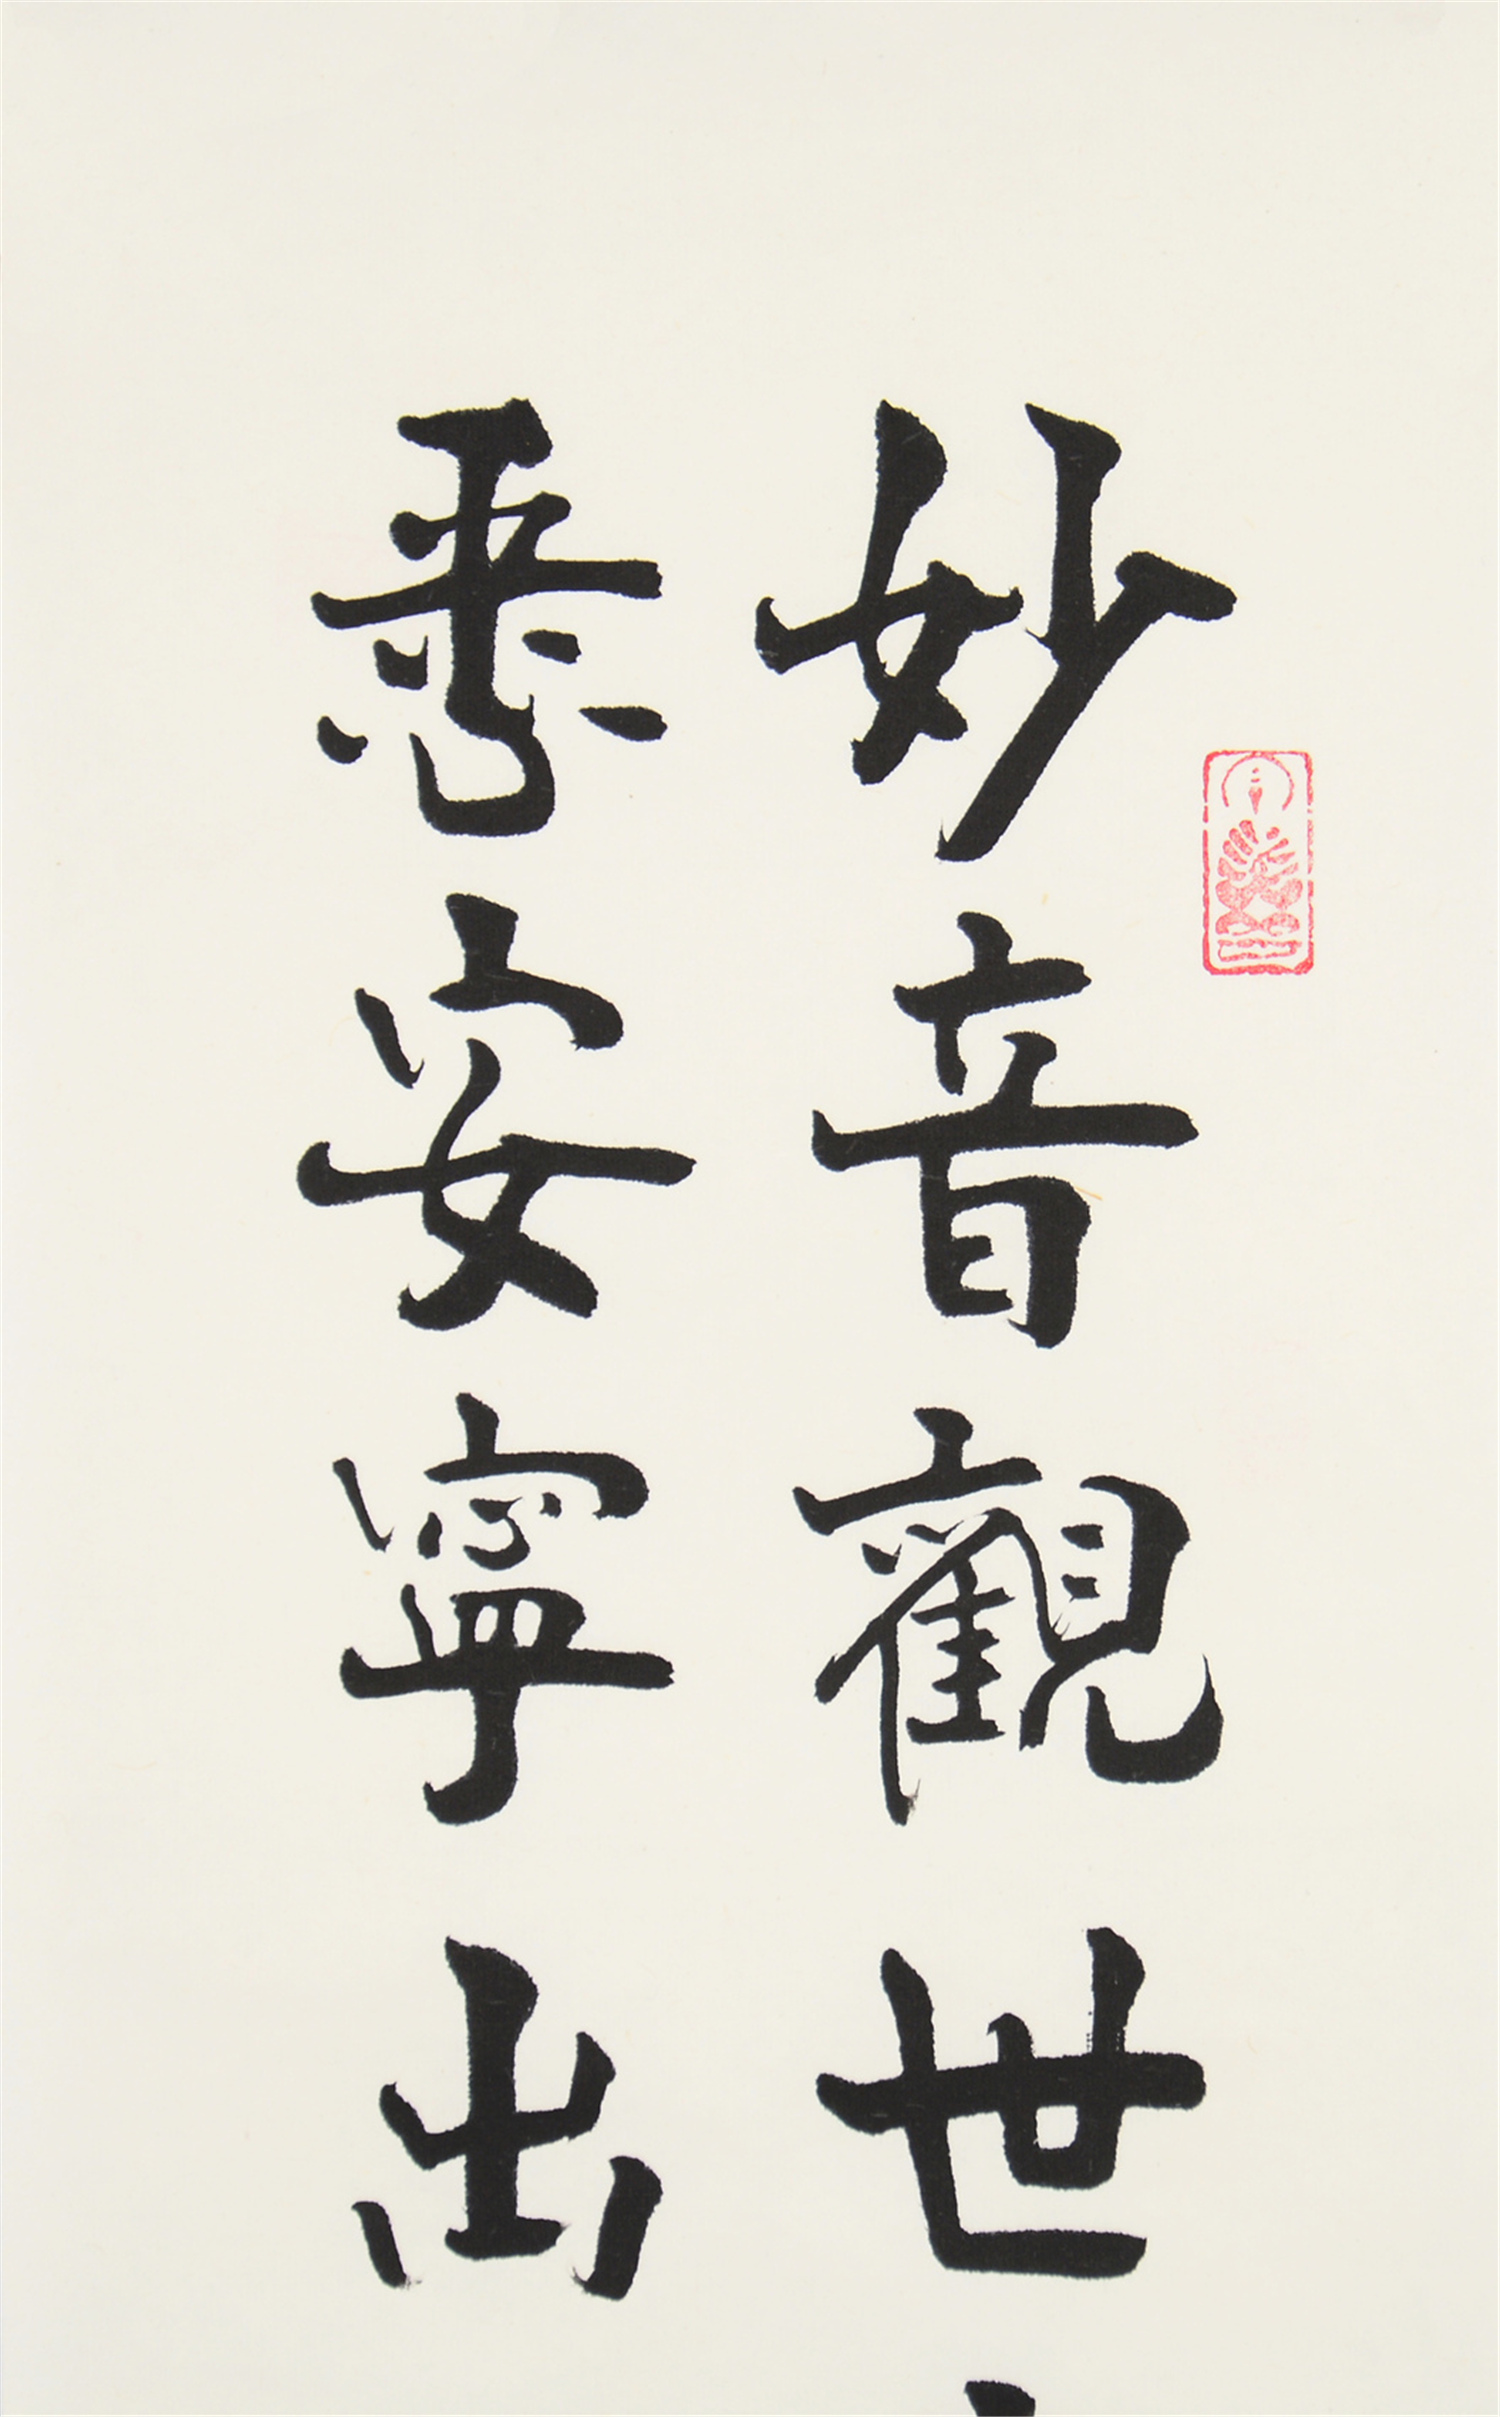 妙音觀世
悉安寧出